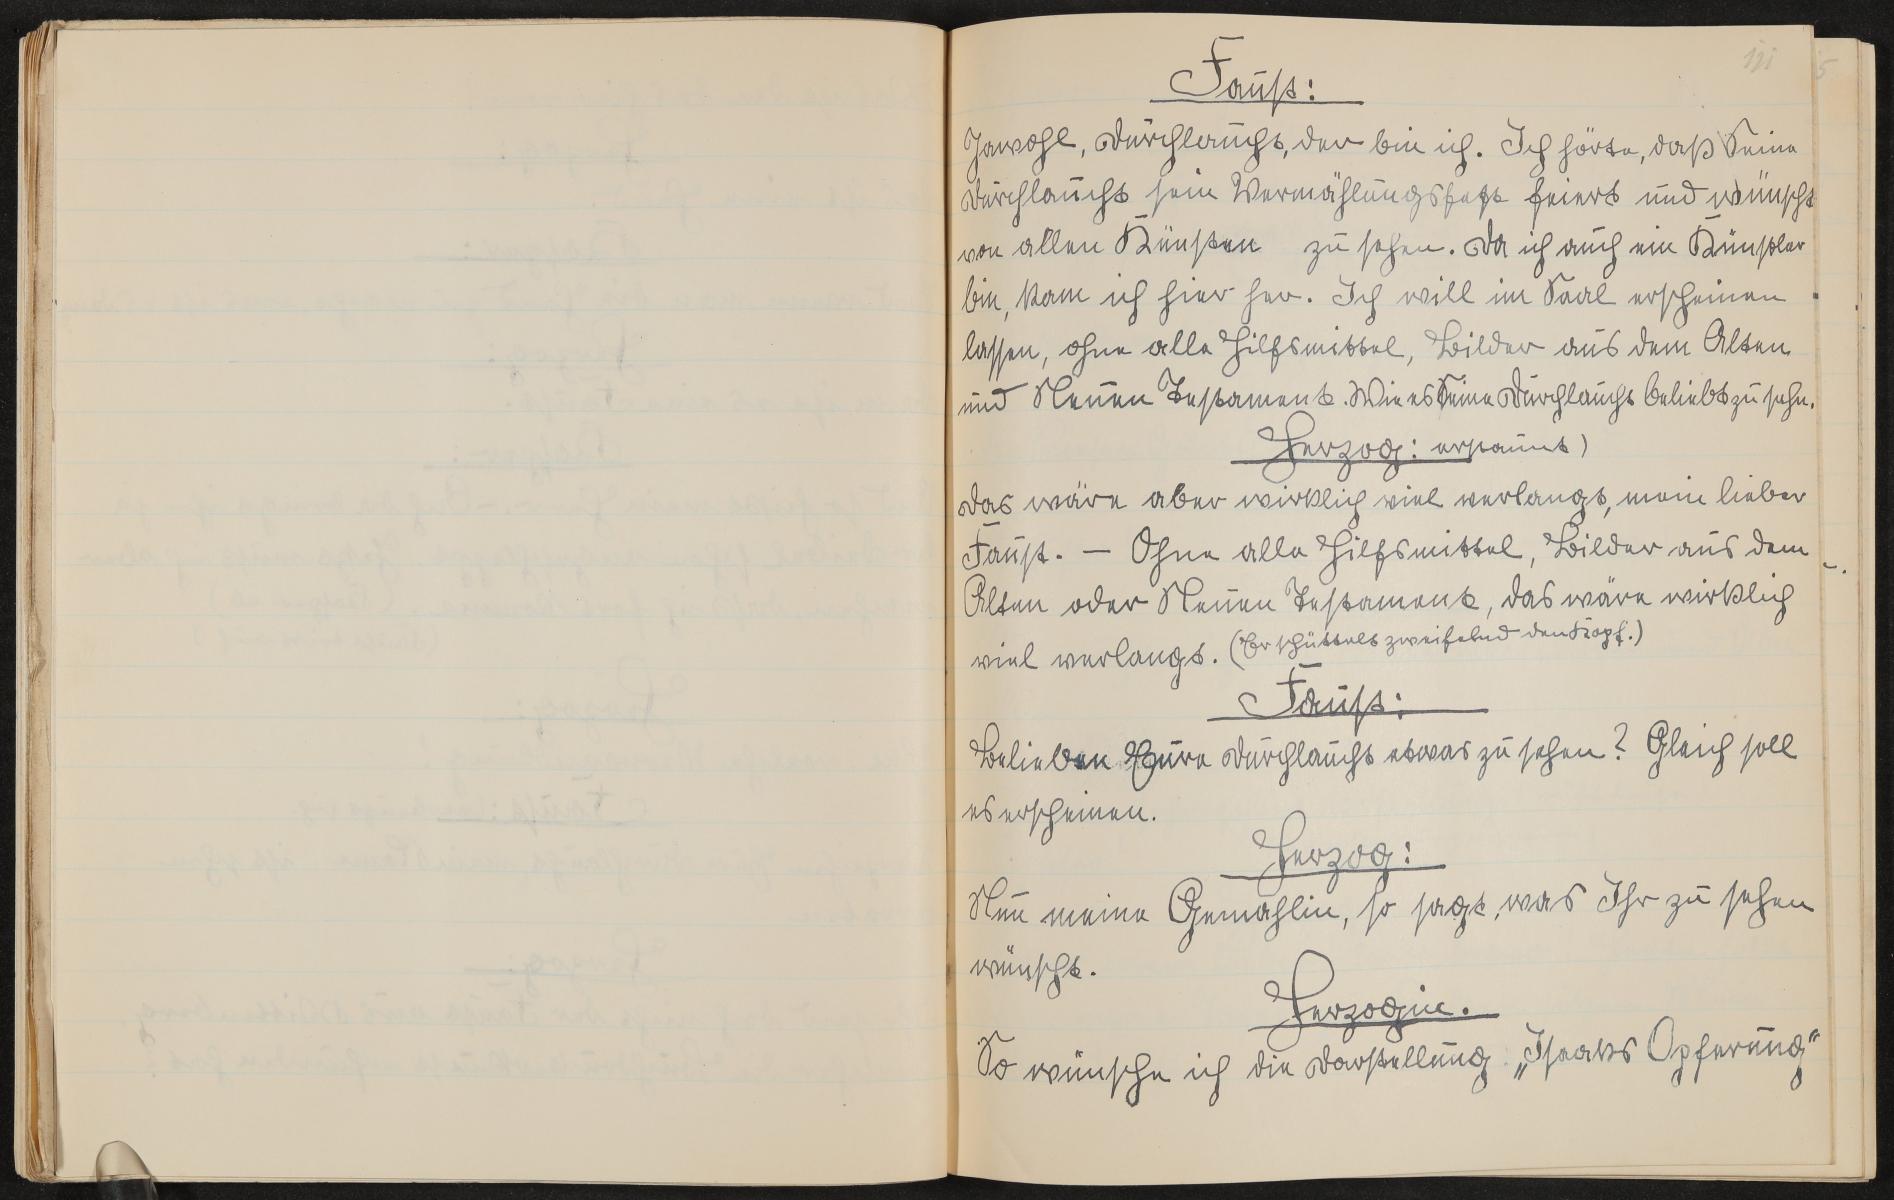 Faust:
Jawohl, Durchlaucht, der bin ich. Ich hörte, daß Seine
Durchlaucht sein Vermählungsfest feiert und wünscht
von allen Künsten zu sehen. Da ich auch ein Künstler
bin, kam ich hier her. Ich will im Saal erscheinen
lassen, ohne alle Hilfsmittel, Bilder aus dem Alten
und Neuen Testament. Wie es Seine Durchlaucht beliebt zu sehn.
Herzog: erstaunt)
Das wäre aber wirklich viel verlangt, mein lieber
Faust. — Ohne alle Hilfsmittel, Bilder aus dem
Alten oder Neuen Testament, das wäre wirklich
viel verlangt. (Er schüttelt zweifelnd den Kopf.)
Faust:
Belieben Eure Durchlaucht etwas zu sehen? Gleich soll
es erscheinen.
Herzog:
Nun meine Gemahlin, so sagt, was Ihr zu sehen
wünscht.
Herzogin.
So wünsche ich die Darstellung „Isaaks Opferung"